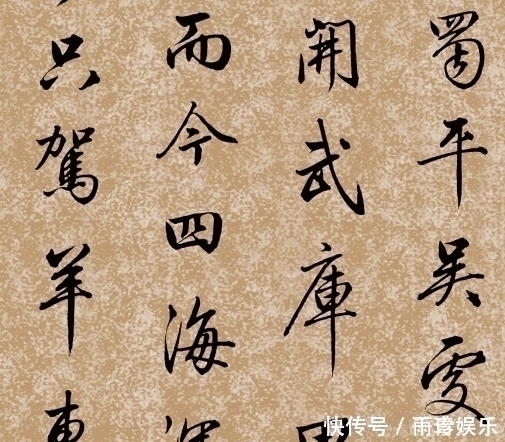 蜀平吴
開武庫
而今四海
只駕羊車
快传号 / 雨娱乐